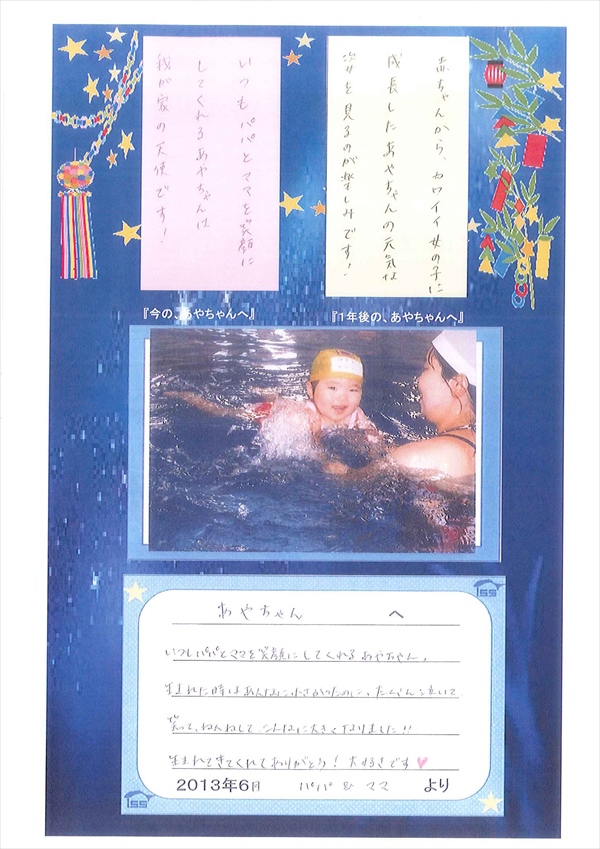 赤ちゃんから、カワイイ女の子に
成長したあやちゃんの元気な
姿を見るのが楽しみです！
いつもパパとママを笑顔に
してくれるあやちゃんは
我が家の天使です！
『今の、あやちゃんへ』
『1年後の、あやちゃんへ』
あやちゃん へ
いつもパパとママを笑顔にしてくれるあやちゃん。
生まれた時はあんなに小さかったのに、たくさん泣いて
笑って、ねんねして こんなに大きくなりました!!
生まれてきてくれてありがとう！大好きです♥
2013年6月 パパ & ママ より
SS
SS